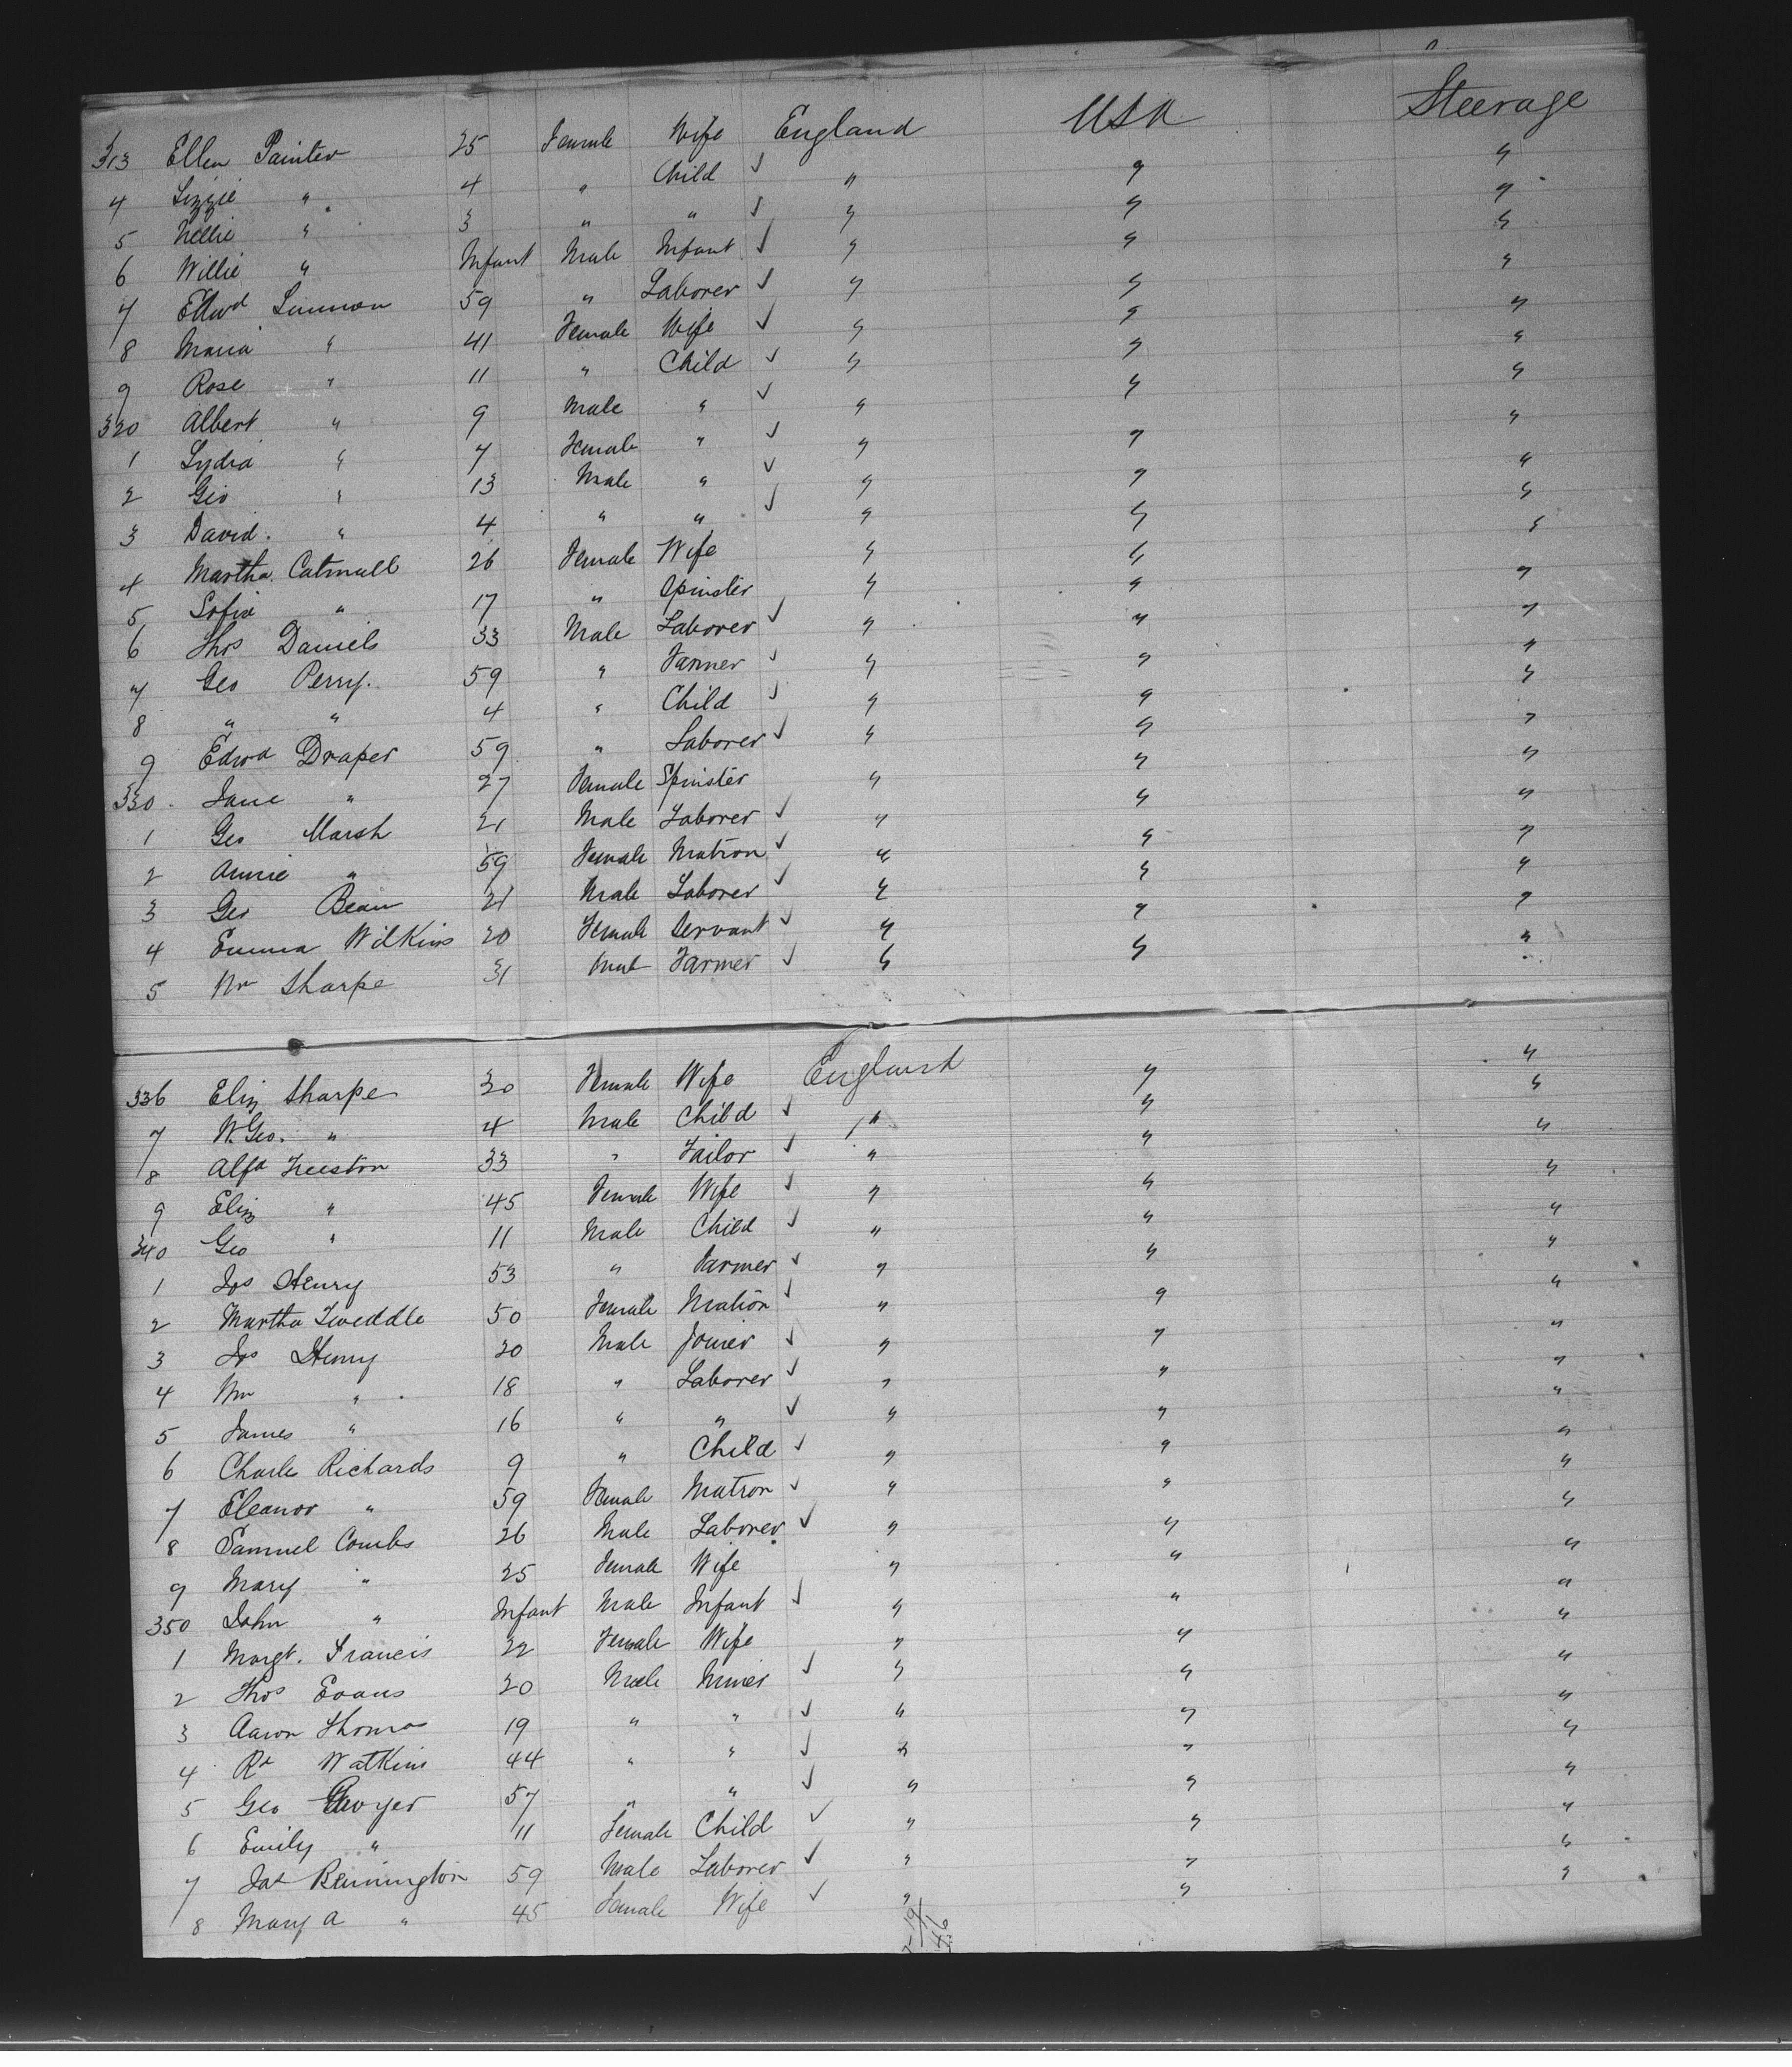 313 Ellen Painter 25 Female Wife England USA Steerage
4 Lizzie " 4 " Child ✓ " " "
5 Nellie " 3 " " ✓ " " "
6 Willie " Infant Male Infant ✓ " " "
7 Edwd 59 " Laborer ✓ " " "
8 Maria " 41 Female Wife ✓ " " "
9 Rose " 11 " Child ✓ " " "
320 Albert " 9 Male " ✓ " " "
1 Lydia " 7 Female " ✓ " " "
2 Geo " 13 Male " ✓ " " "
3 David. " 4 " " ✓ " " "
4 Martha Catmull 26 Female Wife " " "
5 Sofia " 17 " Spinster " " "
6 Thos Daniels 33 Male Laborer ✓ " " "
7 Geo Perry. 59 " Farmer ✓ " " "
8 " " 4 " Child ✓ " " "
9 Edwd Draper 59 " Laborer ✓ " " "
330 Jane " 27 Female Spinster " " "
1 Geo Marsh 21 Male Laborer ✓ " " "
2 Annie " 59 Female Matron ✓ " " "
3 Geo Bean 21 Male Laborer ✓ " " "
4 Emma Wilkins 20 Female Servant ✓ " " "
5 Wm Sharpe 31 Male Farmer ✓ " " "
336 Eliz Sharpe 30 Female Wife England " "
7 W. Geo. " 4 Male Child ✓ " " "
8 Alfd 33 " Tailor ✓ " " "
9 Eliz " 45 Female Wife ✓ " " "
340 Geo " 11 Male Child ✓ " " "
1 Jos Henry 53 " Farmer ✓ " " "
2 Martha Tweddle 50 Female Matron ✓ " " "
3 Jos Henry 20 Male Joiner ✓ " " "
4 Wm " 18 " Laborer ✓ " " "
5 James " 16 " " ✓ " " "
6 Charle Richards 9 " Child ✓ " " "
7 Eleanor " 59 Female Matron ✓ " " "
8 Samuel Combs 26 Male Laborer ✓ " " "
9 Mary " 25 Female Wife " " "
350 John " Infant Male Infant ✓ " " "
1 Margt. Francis 22 Female Wife " " "
2 Thos Evans 20 Male Miner ✓ " " "
3 Aaron Thomas 19 " " ✓ " " "
4 Rd Watkins 44 " " ✓ " " "
5 Geo 57 " " ✓ " " "
6 Emily " 11 Female Child ✓ " " "
7 Jas Remington 59 Male Laborer ✓ " " "
8 Mary A " 45 Female Wife ✓ " " "